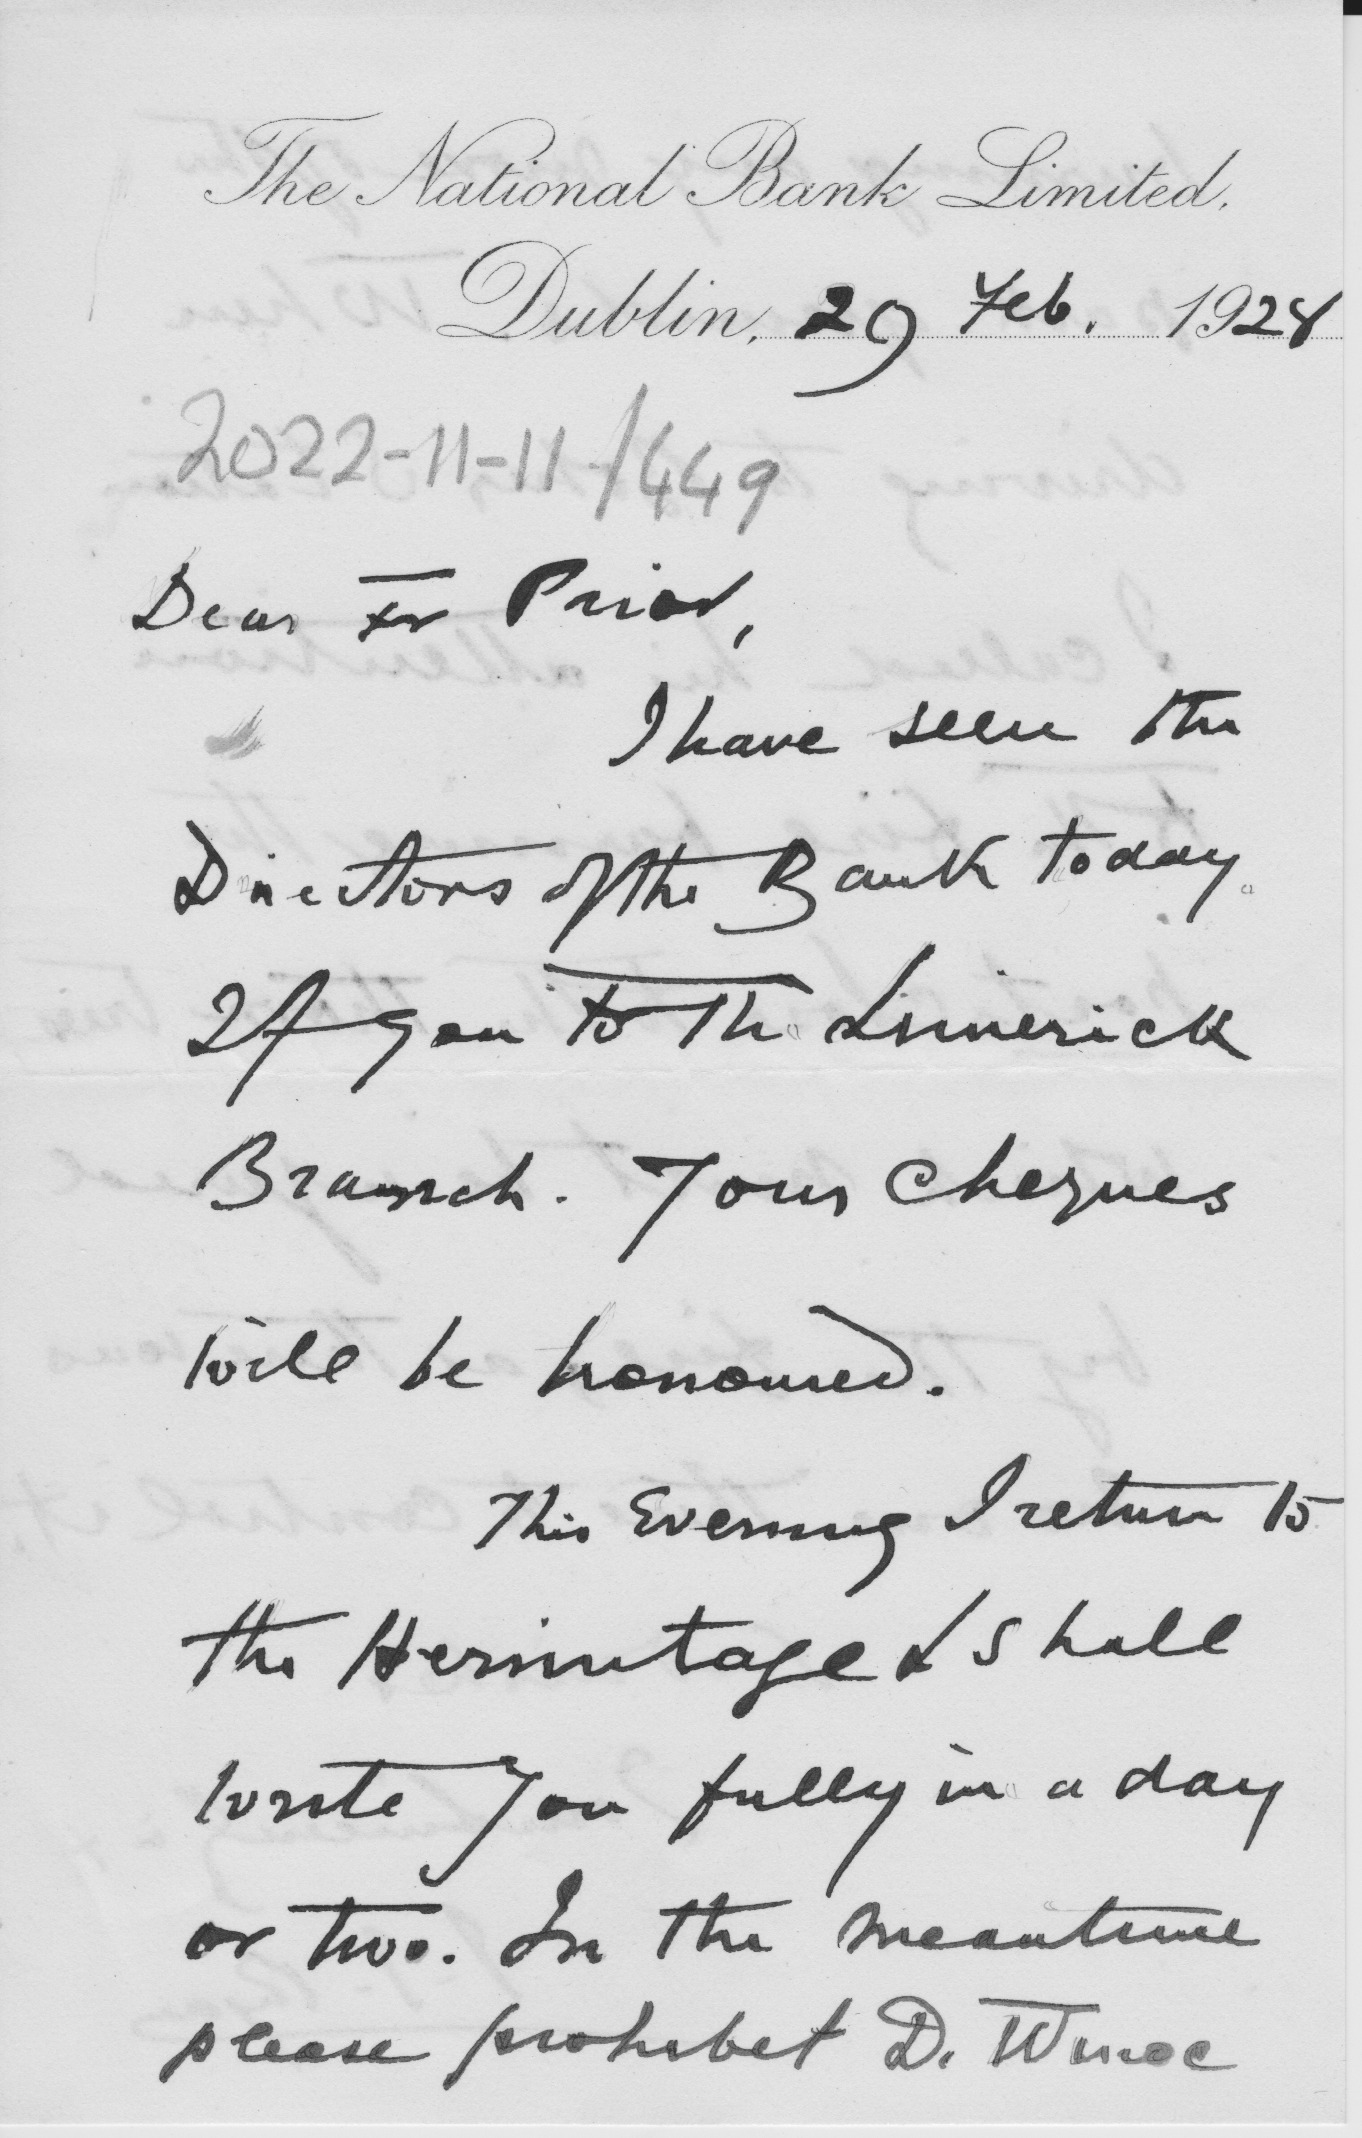 The National Bank Limited.
Dublin, 29 Feb. 1928
2022-11-11/449
Dear Fr Prior,
I have seen the
Directors of the Bank today.
If you to the Limerick
Branch. Your cheques
will be honoured.
This Evening I return to
the Hermitage & shall
write you fully in a day
or two. In the meantime
please prohibit D.